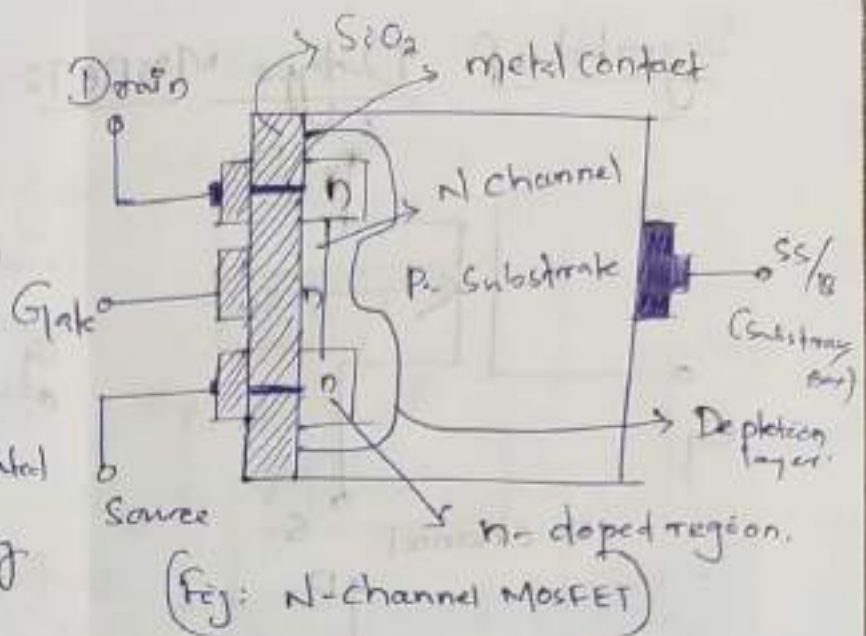 SiO2
metal contact
Drain
n
N channel
P- Substrate
SS/B
Gate
n
n
Depletion
layer.
Source
n- doped region.
(Fig: N-Channel MOSFET)